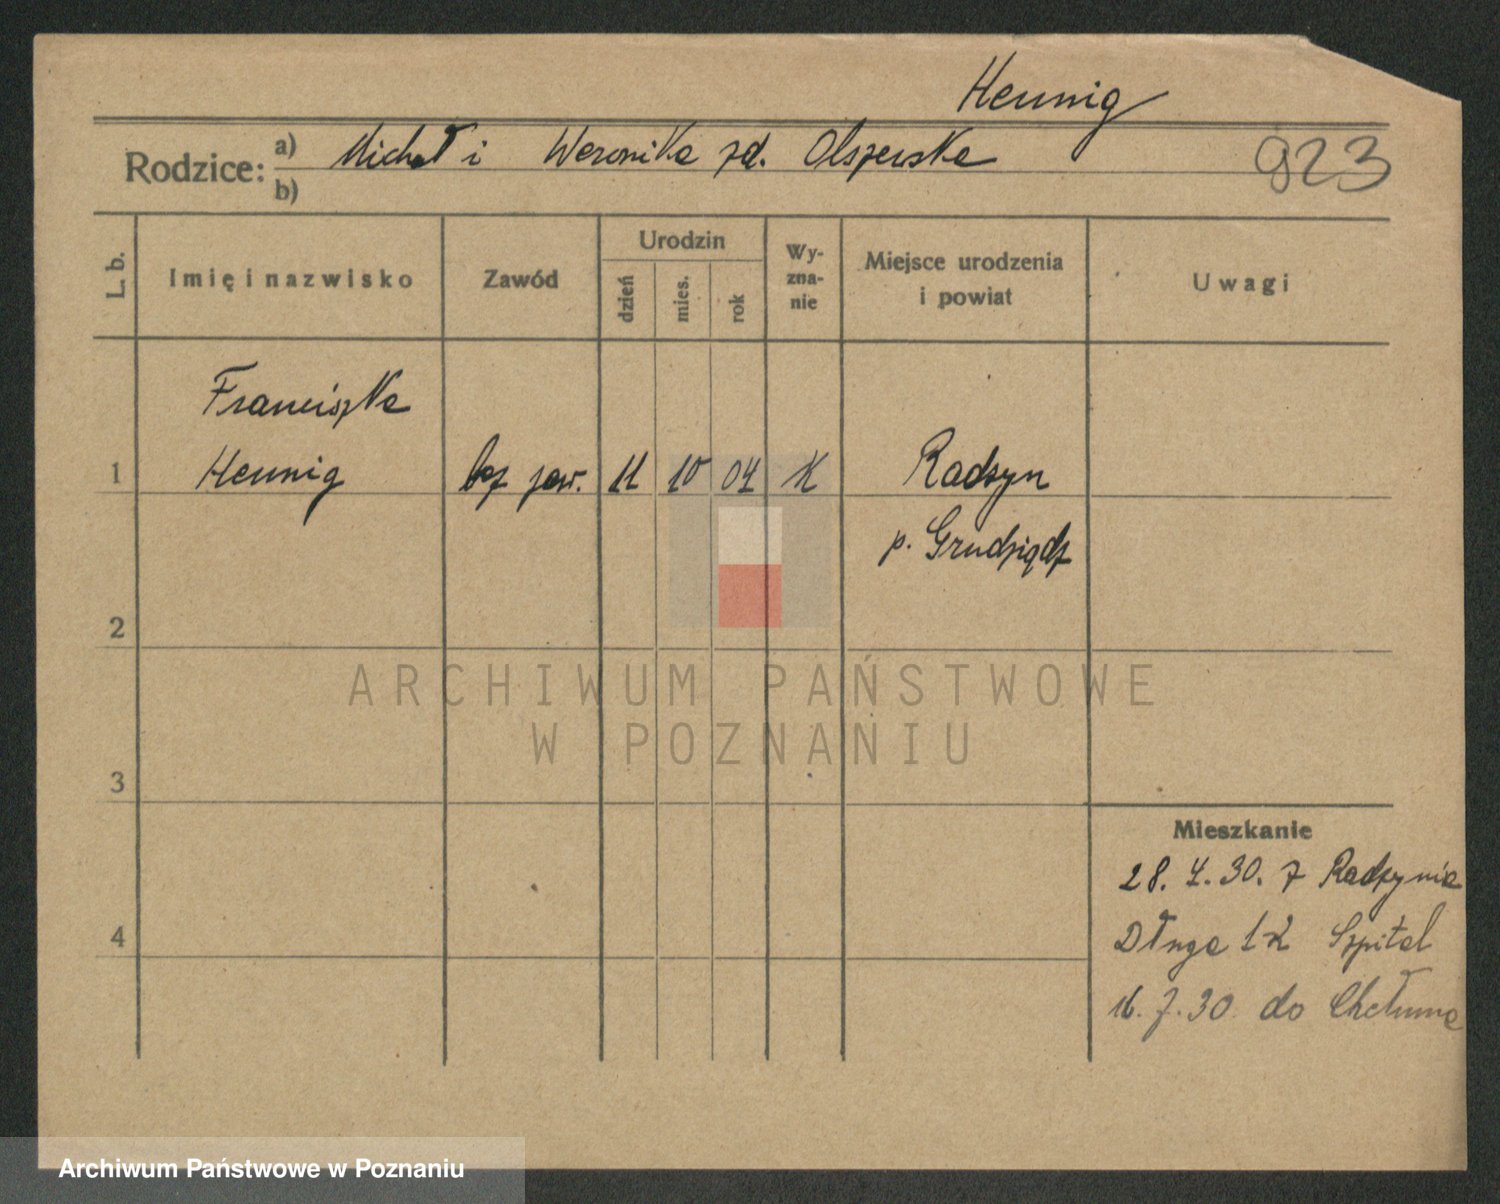 Hennig
923
Rodzice: a) Michał i Weronika zd. Olszewska
b)
L. b.
Imię i nazwisko
Zawód
Urodzin
dzień
mies.
rok
Wy-
zna-
nie
Miejsce urodzenia
i powiat
Uwagi
Franciszka
1 Hennig bez zaw. 11 10 04 K Radzyn
p. Grudziądz
2
3
4
Mieszkanie
28. 4. 30. z Radzynia
Długa 12 Szpital
16. 7. 30. do Chełmna
ARCHIWUM PAŃSTWOWE
W POZNANIU
Archiwum Państwowe w Poznaniu